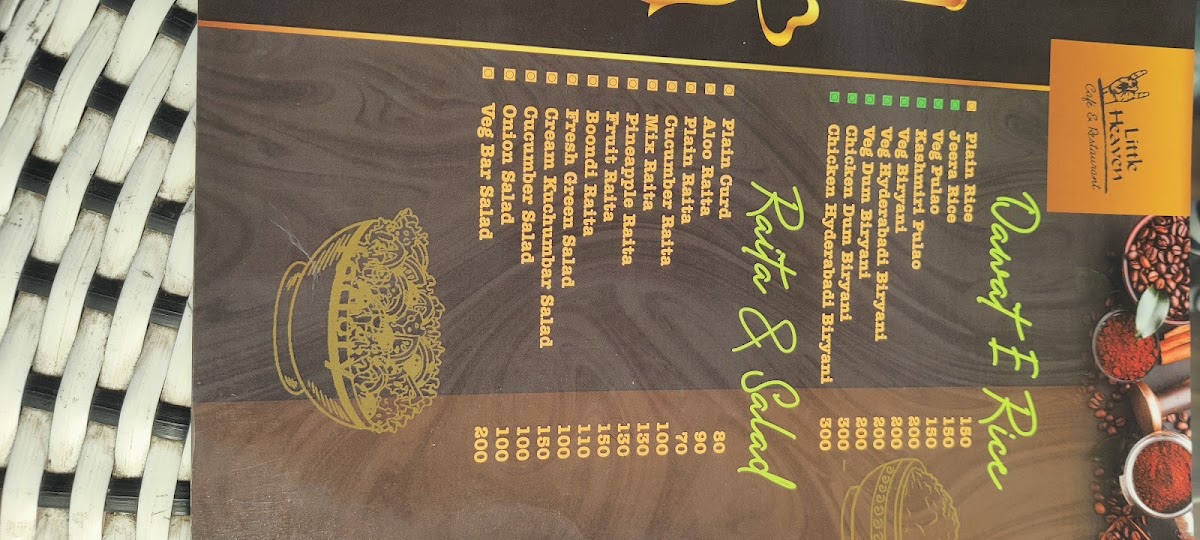 Little
Heaven
Cafe & Restaurant
Dawat E Rice
Plain Rice 150
Jeera Rice 150
Veg Pulao 150
Kashmiri Pulao 200
Veg Biryani 200
Veg Hyderabadi Biryani 200
Veg Dum Biryani 200
Chicken Dum Biryani 300
Chicken Hyderabadi Biryani 300
Raita & Salad
Plain Curd 80
Aloo Raita 90
Plain Raita 70
Cucumber Raita 100
Mix Raita 130
Pineapple Raita 130
Fruit Raita 150
Boondi Raita 110
Fresh Green Salad 100
Cream Kuchumbar Salad 150
Cucumber Salad 100
Onion Salad 100
Veg Bar Salad 200